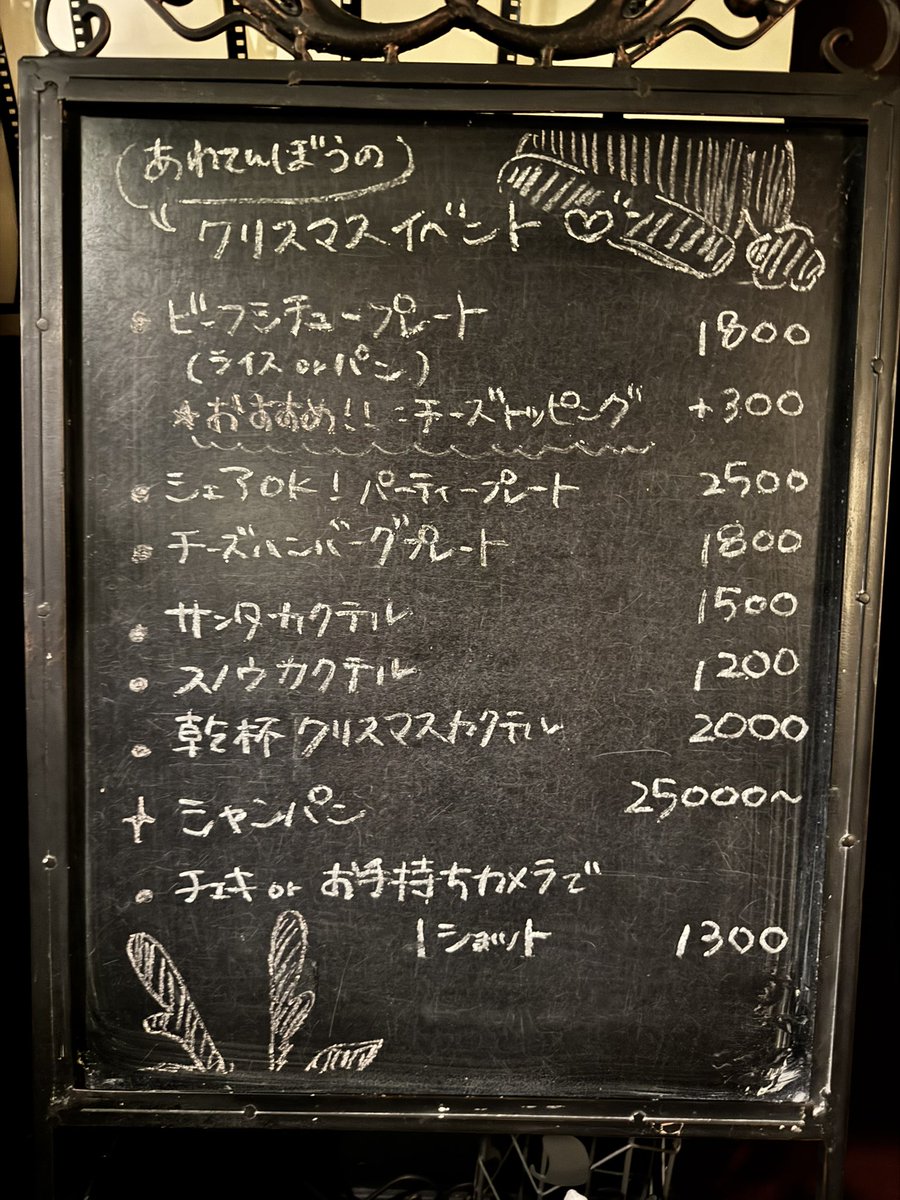 あれてんぼうの
クリスマスイベント
・ビーフシチュープレート 1800
(ライス or パン)
★おすすめ!! :チーズトッピング +300
・シェアOK! パーティープレート 2500
・チーズハンバーグプレート 1800
・サンタカクテル 1500
・スノウカクテル 1200
・乾杯クリスマスカクテル 2000
シャンパン 25000~
・チェキ or お手持ちカメラで
1ショット 1300